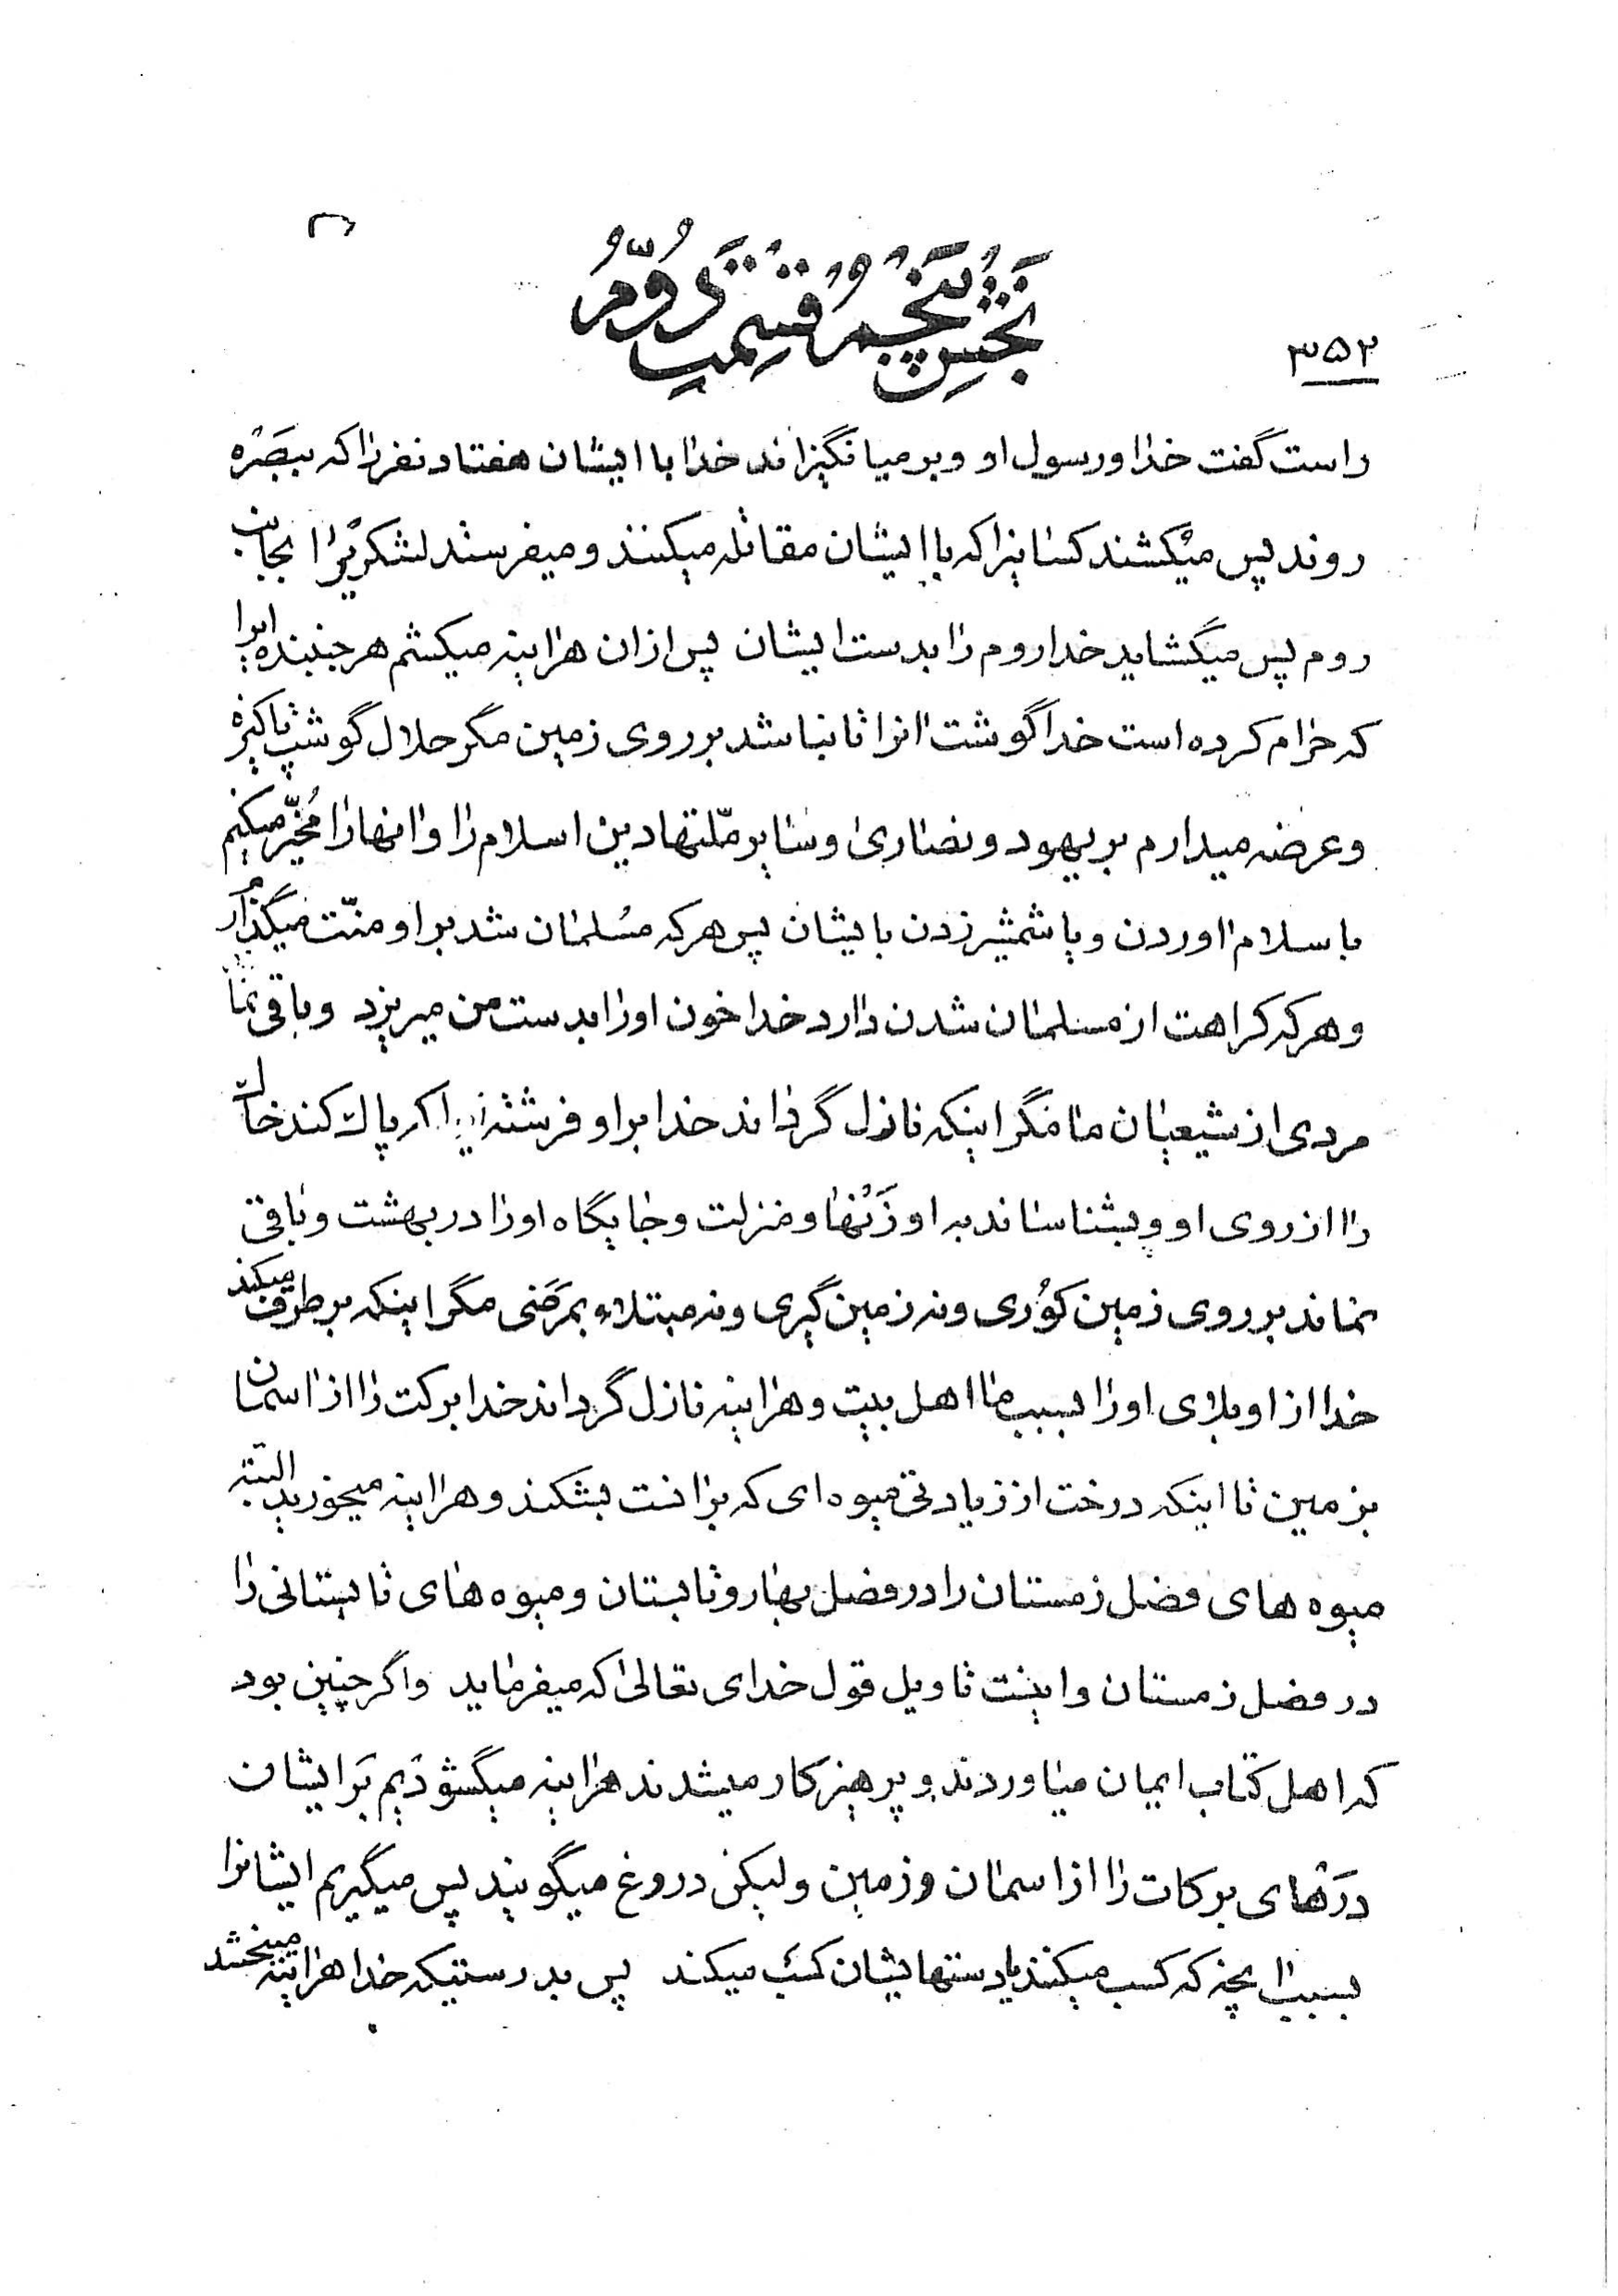 بخش پنجم قسمت دوم
۳۵۲
راست گفت خدا و رسول او و بر میانگیزاند خدا با ایشان هفتاد نفر را که ببصره
روند پس میکشند کسانیرا که با ایشان مقاتله میکنند و میفرستد لشکریرا بجانب
روم پس میگشاید خدا روم را بدست ایشان پس از ان هراینه میکشم هر جنبنده ایرا
که حرام کرده است خدا گوشت انرا تا نباشد بر روی زمین مگر حلال گوشت پاکیزه
و عرضه میدارم بر یهود و نصاری و سایر ملّتها دین اسلام را و انها را مُخیّر میکنم
باسلام اوردن و یا شمشیر زدن بایشان پس هر که مسلمان شد بر او منّت میگذارم
و هر که کراهت از مسلمان شدن دارد خدا خون او را بدست من میریزد و باقی نماند
مردی از شیعیان ما مگر اینکه نازل گرداند خدا بر او فرشته ایرا که پاک کند خاک
را از روی او و بشناساند به او زَنْها و منزلت و جایگاه او را در بهشت و باقی
نماند بر روی زمین کوُری و نه زمین گیری و نه مبتلاء بمَرَضی مگر اینکه برطرف میکند
خدا از او بلای او را بسبب ما اهل بیت و هراینه نازل گرداند خدا برکت را از اسمان
بزمین تا اینکه درخت از زیادتی میوه ای که برانست بشکند و هراینه میخورید البتّه
میوه های فصل زمستان را در فصل بهار و تابستان و میوه های تابستانی را
در فصل زمستان و اینست تاویل قول خدای تعالی که میفرماید و اگر چنین بود
که اهل کتاب ایمان میاوردند و پرهیزکار میشدند هراینه میگشودیم بَر ایشان
دَرْهای برکات را از اسمان و زمین و لیکن دروغ میگویند پس میگیریم ایشانرا
بسبب انچه که کسب میکنند یا دستهایشان کسب میکند پس بدرستیکه خدا هراینه میبخشد